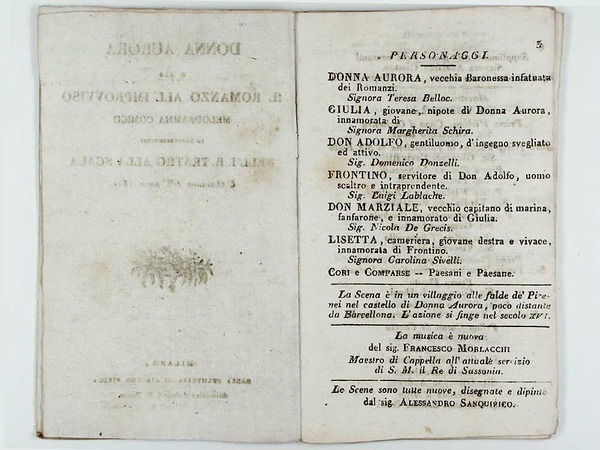 DONNA AURORA
O SIA
IL ROMANZO ALL' IMPROVVISO
MELODRAMMA COMICO
NELL' I. R. TEATRO ALLA SCALA
MILANO,
3
PERSONAGGI.
DONNA AURORA, vecchia Baronessa infatuata
dei Romanzi.
Signora Teresa Belloc.
GIULIA, giovane, nipote di Donna Aurora,
innamorata di
Signora Margherita Schira.
DON ADOLFO, gentiluomo, d'ingegno svegliato
ed attivo.
Sig. Domenico Donzelli.
FRONTINO, servitore di Don Adolfo, uomo
scaltro e intraprendente.
Sig. Luigi Lablache.
DON MARZIALE, vecchio capitano di marina,
fanfarone, e innamorato di Giulia.
Sig. Nicola De Grecis.
LISETTA, cameriera, giovane destra e vivace,
innamorata di Frontino.
Signora Carolina Sivelli.
CORI e COMPARSE -- Paesani e Paesane.
La Scena è in un villaggio alle falde de' Pire-
nei nel castello di Donna Aurora, poco distante
da Barcellona. L'azione si finge nel secolo XVI.
La musica è nuova
del sig. FRANCESCO MORLACCHI
Maestro di Cappella all'attuale servizio
di S. M. il Re di Sassonia.
Le Scene sono tutte nuove, disegnate e dipinte
dal sig. ALESSANDRO SANQUIRICO.